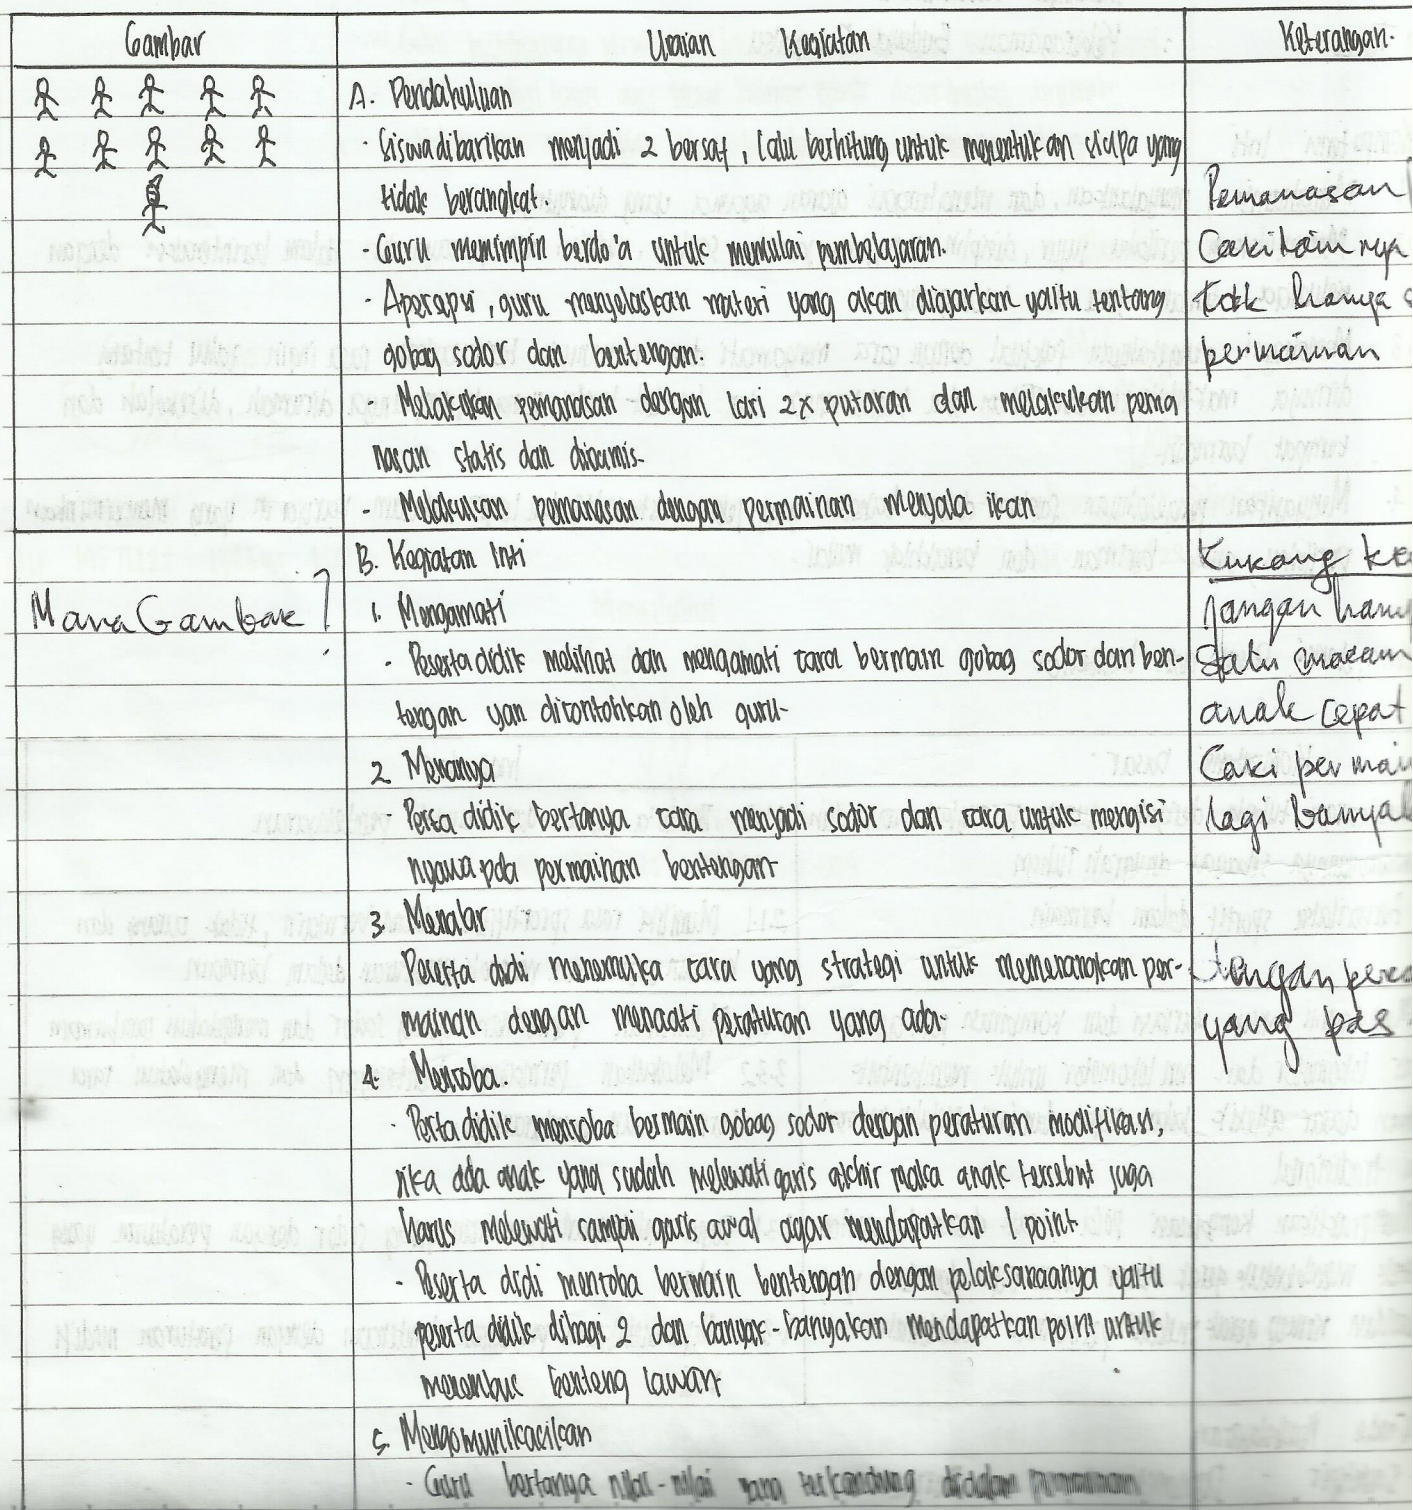 Gambar
Uraian Kegiatan
Keterangan.
A. Pendahuluan
- Siswa dibariskan menjadi 2 bersaf, lalu berhitung untuk menentukan siapa yang
tidak berangkat.
- Guru memimpin berdo'a untuk memulai pembelajaran.
- Apersepsi, guru menjelaskan materi yang akan diajarkan yaitu tentang
gobag sodor dan bentengan.
- Melakukan pemanasan dengan lari 2x putaran dan melakukan pema
nasan statis dan dinamis-
- Melakukan pemanasan dengan permainan menjala ikan
Pemanasan
Cari lain nya
tdk hanya
permainan
B. Kegiatan Inti
Mana Gambar ?
1. Mengamati
- Peserta didik melihat dan mengamati cara bermain gobag sodor dan ben-
tengan yan dicontohkan oleh guru-
2. Menanya
- Persta didik bertanya cara menjadi sodor dan cara untuk mengisi
nyawa pda permainan bentengan-
3. Menalar
- Peserta didi menemuka cara yang strategi untuk memenangkan per-
mainan dengan menaati peraturan yang ada-
4. Mencoba.
- Perta didik mencoba bermain gobag sodor dengan peraturan modifikasi,
jika ada anak yang sudah melewati garis akhir maka anak tersebut juga
harus melewati sampai garis awal agar mendapatkan 1 point.
- Peserta didi mencoba bermain bentengan dengan pelaksanaanya yaitu
peserta didik dibagi 2 dan banyak banyakan mendapatkan point untuk
menembus benteng lawan
5. Mengomunikasikan
- Guru bertanya nilai-nilai yang terkandung didalam permainan
Kukang
Jangan
satu macam
anak cepat
Cari
lagi
yang pas